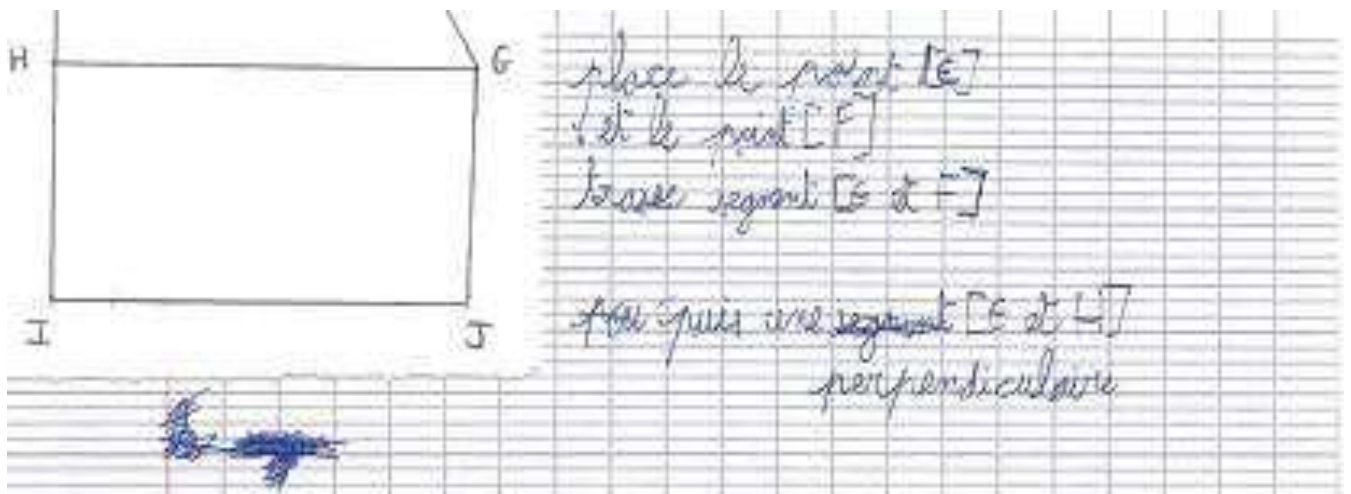 H
G
place le point [E]
et le point [F]
trace segment [E et F]
puis une segment [E et H]
perpendiculaire
I
J